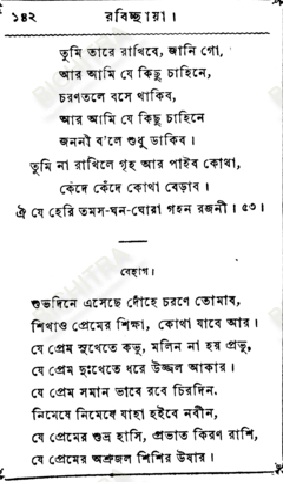 ১৪২ রবিচ্ছায়া।
তুমি তারে রাখিবে, জানি গো,
আর আমি যে কিছু চাহিনে,
চরণতলে বসে থাকিব,
আর আমি যে কিছু চাহিনে
জননী ব'লে শুধু ডাকিব।
তুমি না রাখিলে গৃহ আর পাইব কোথা,
কেঁদে কেঁদে কোথা বেড়াব।
ঐ যে হেরি তমস-ঘন-ঘোরা গহন রজনী। ৫৩।
বেহাগ।
শুভদিনে এসেছে দোঁহে চরণে তোমার,
শিখাও প্রেমের শিক্ষা, কোথা যাবে আর।
যে প্রেম সুখেতে কভু, মলিন না হয় প্রভু,
যে প্রেম দুঃখেতে ধরে উজ্জল আকার।
যে প্রেম সমান ভাবে রবে চিরদিন,
নিমেষে নিমেষে যাহা হইবে নবীন,
যে প্রেমের শুভ্র হাসি, প্রভাত কিরণ রাশি,
যে প্রেমের অশ্রুজল শিশির উষার।